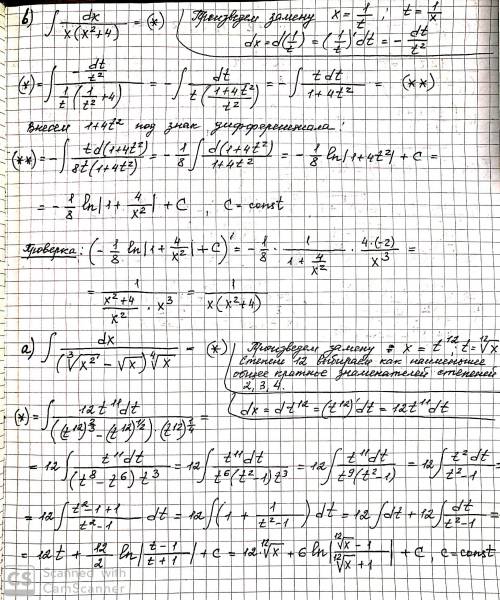 в) ∫ dx / (x(x²+4)) = (*) Произведем замену x = 1/t ; t = 1/x
dx = d(1/t) = (1/t)' dt = - dt/t²
(*) = ∫ (-dt/t²) / (1/t (1/t² + 4)) = - ∫ dt / (t((1+4t²)/t²)) = - ∫ t dt / (1+4t²) = (**)
Внесем 1+4t² под знак дифференциала:
(**) = - ∫ t d(1+4t²) / (8t(1+4t²)) = - 1/8 ∫ d(1+4t²) / (1+4t²) = - 1/8 ln|1+4t²| + C =
= - 1/8 ln|1 + 4/x²| + C ; C = const
Проверка: (- 1/8 ln|1 + 4/x²| + C)' = - 1/8 · 1/(1 + 4/x²) · 4·(-2)/x³ =
= 1 / ((x²+4)/x² · x³) = 1 / (x(x²+4))
а) ∫ dx / ((∛x² - √x) ∜x) = (*) Произведем замену: x = t¹² · t = ¹²√x
Степень 12 выбираем как наименьшее
общее кратное знаменателей степеней
2, 3, 4.
dx = dt¹² = (t¹²)' dt = 12t¹¹ dt
(*) = ∫ 12 t¹¹ dt / (((t¹²)^(2/3) - (t¹²)^(1/2)) · (t¹²)^(1/4)) =
= 12 ∫ t¹¹ dt / ((t⁸ - t⁶) t³) = 12 ∫ t¹¹ dt / (t⁶(t²-1) t³) = 12 ∫ t¹¹ dt / (t⁹(t²-1)) = 12 ∫ t² dt / (t²-1) =
= 12 ∫ (t²-1+1)/(t²-1) dt = 12 ∫ (1 + 1/(t²-1)) dt = 12 ∫ dt + 12 ∫ dt/(t²-1) =
= 12t + 12/2 ln|(t-1)/(t+1)| + C = 12·¹²√x + 6 ln|(¹²√x - 1)/(¹²√x + 1)| + C, C = const
CS Scanned with
CamScanner